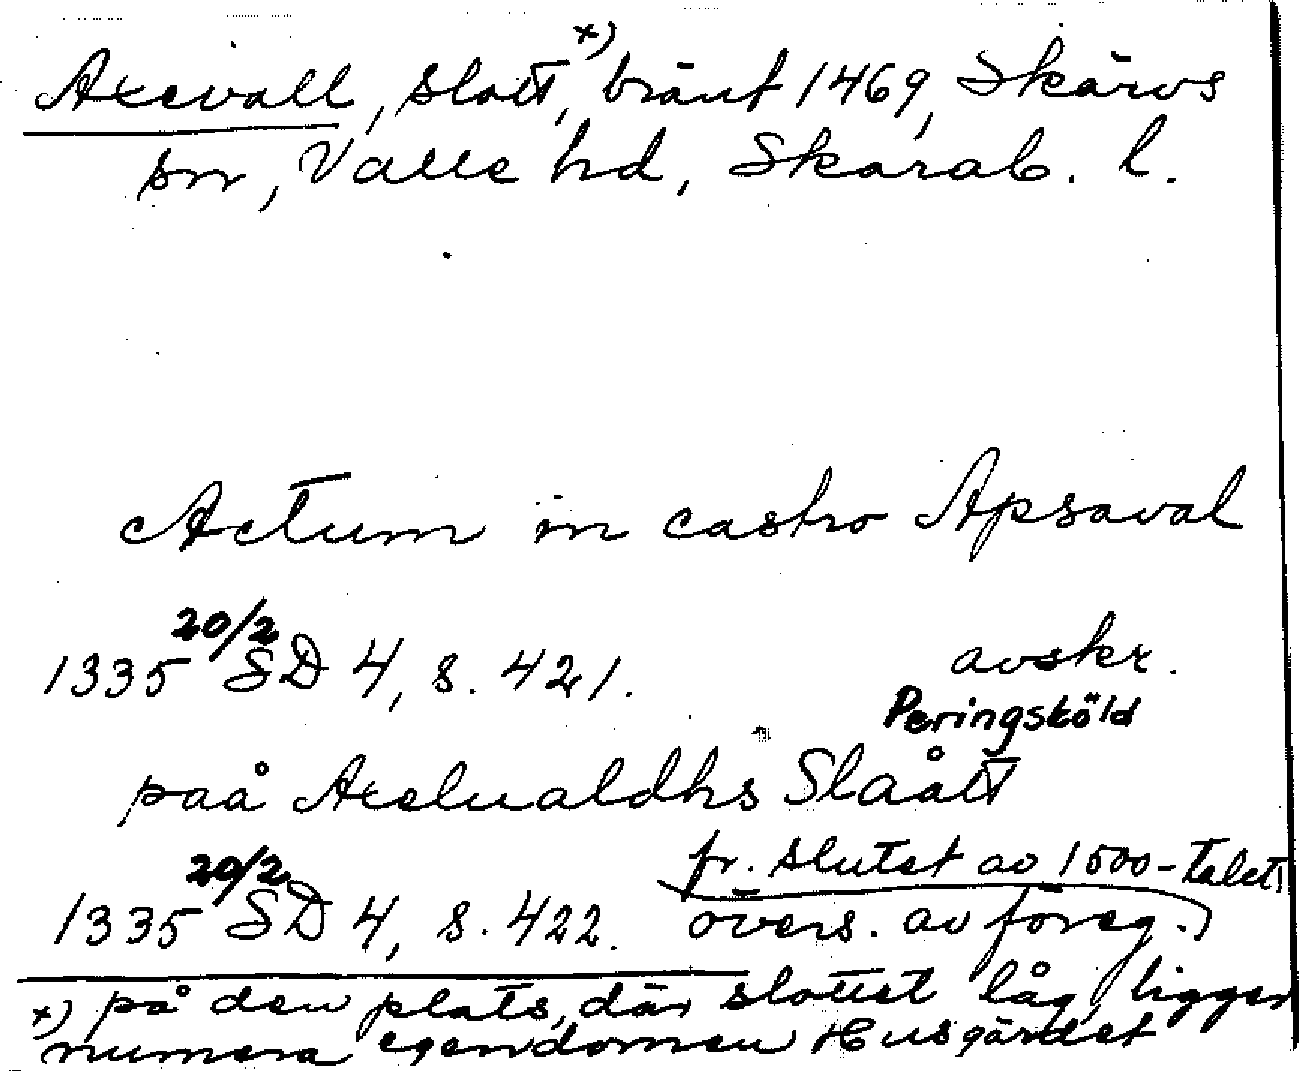 Axevall, slott, x) bränt 1469, Skärvs
sn, Valle hd, Skarab. l.
Actum in castro Apsaval
1335 20/2 SD 4, s. 421. avskr.
Peringsköld
paå Axelualdhs Slaått
fr. slutet av 1500-talet,
1335 20/2 SD 4, s. 422. övers. av föreg.)
x) på den plats, där slottet låg, ligger
numera egendomen Husgärdet